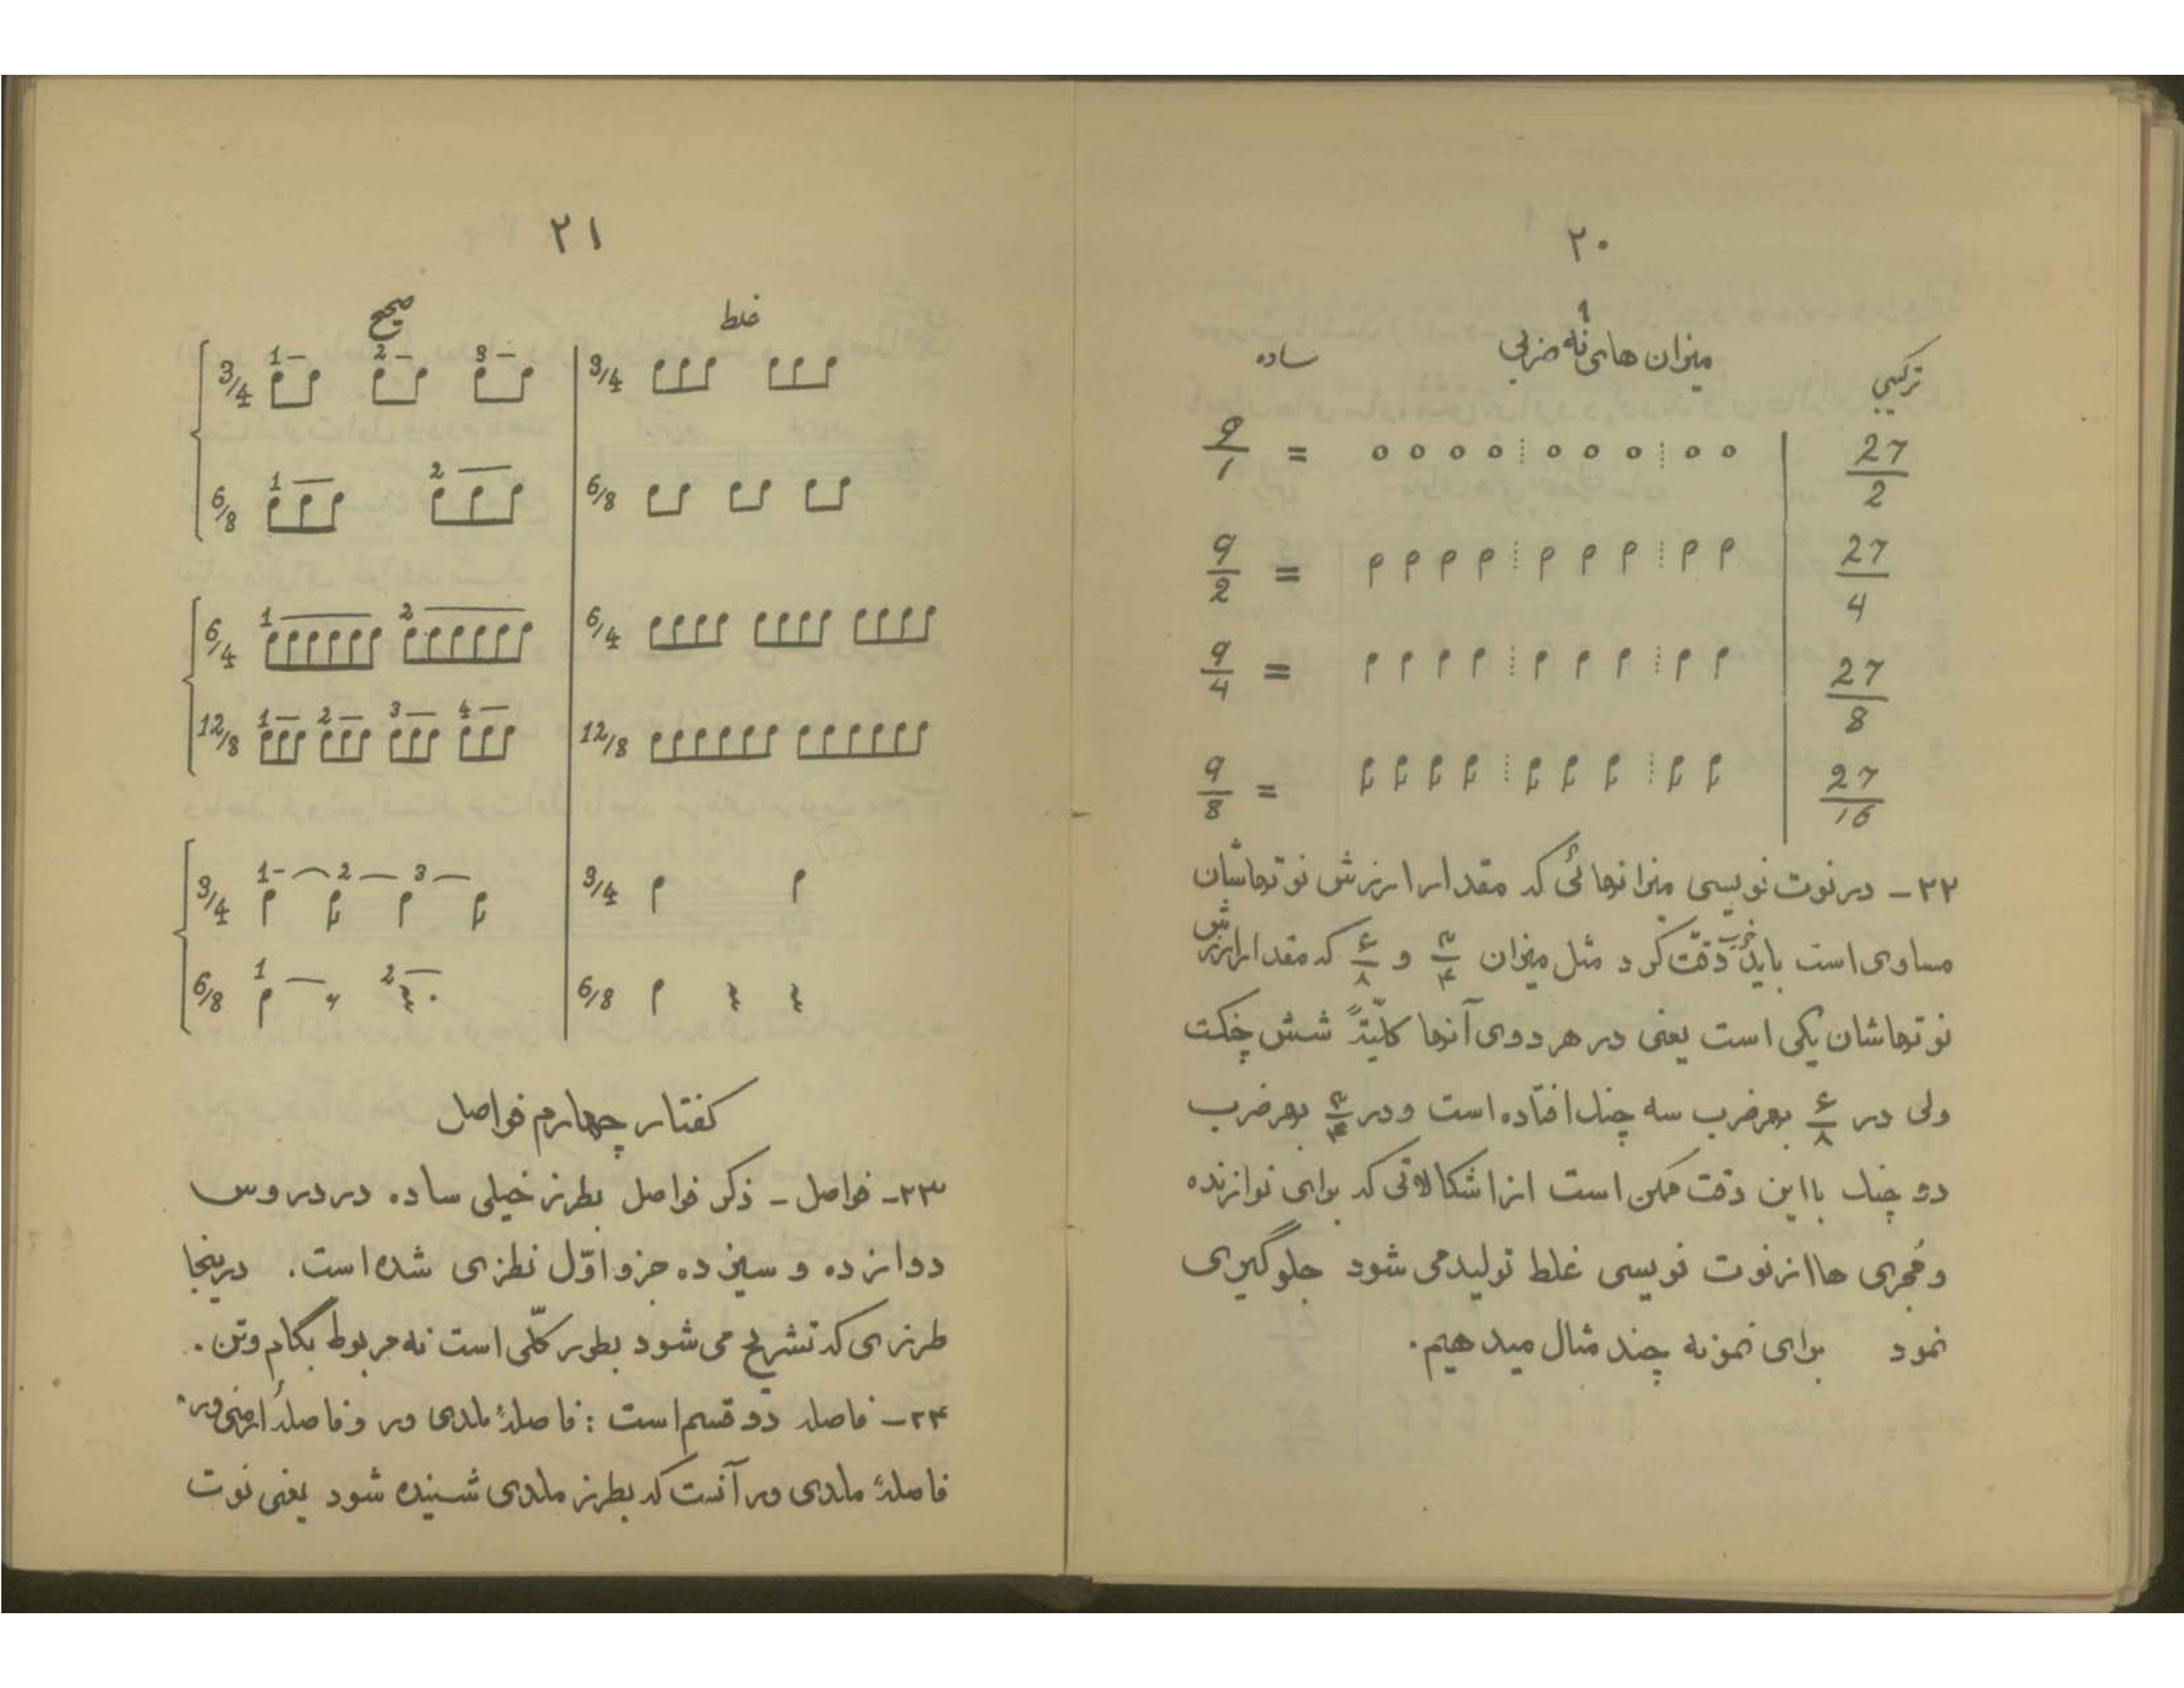 ۲۰
میزان های نُه ضربی
ترکیبی ساده
9/1 = 27/2
9/2 = 27/4
9/4 = 27/8
9/8 = 27/16
۲۲- در نوت نویسی میزانهائی که مقدار ارزش نوتهاشان
مساوی است باید خوب دقّت کرد مثل میزان ۳/۴ و ۶/۸ که مقدار ارزش
نوتهاشان یکی است یعنی در هر دوی آنها کلّیتهً شش چنگ است
ولی در ۶/۸ بهر ضرب سه چنگ افتاده است و در ۳/۴ بهر ضرب
دو چنگ با این دقت ممکن است از اشکالاتی که برای نوازنده
و مُجری ها از نوت نویسی غلط تولید می شود جلوگیری
نمود برای نمونه چند مثال میدهیم.
۲۱
غلط صحیح
3/4 3/4 1 2 3
6/8 6/8 1 2
6/4 6/4 1 2
12/8 12/8 1 2 3 4
3/4 3/4 1 2 3
6/8 6/8 1 2
گفتار چهارم فواصل
۲۳- فواصل - ذکر فواصل بطرز خیلی ساده در دروس
دوازده و سیزده جزو اوّل نظری شده است. درینجا
طرزی که تشریح می شود بطور کلّی است نه مربوط بگام و تن.
۲۴- فاصله دو قسم است : فاصلهٔ ملدی ور و فاصلهٔ ارمنی ور
فاصلهٔ ملدی ور آنست که بطرز ملدی شنیده شود یعنی نوت